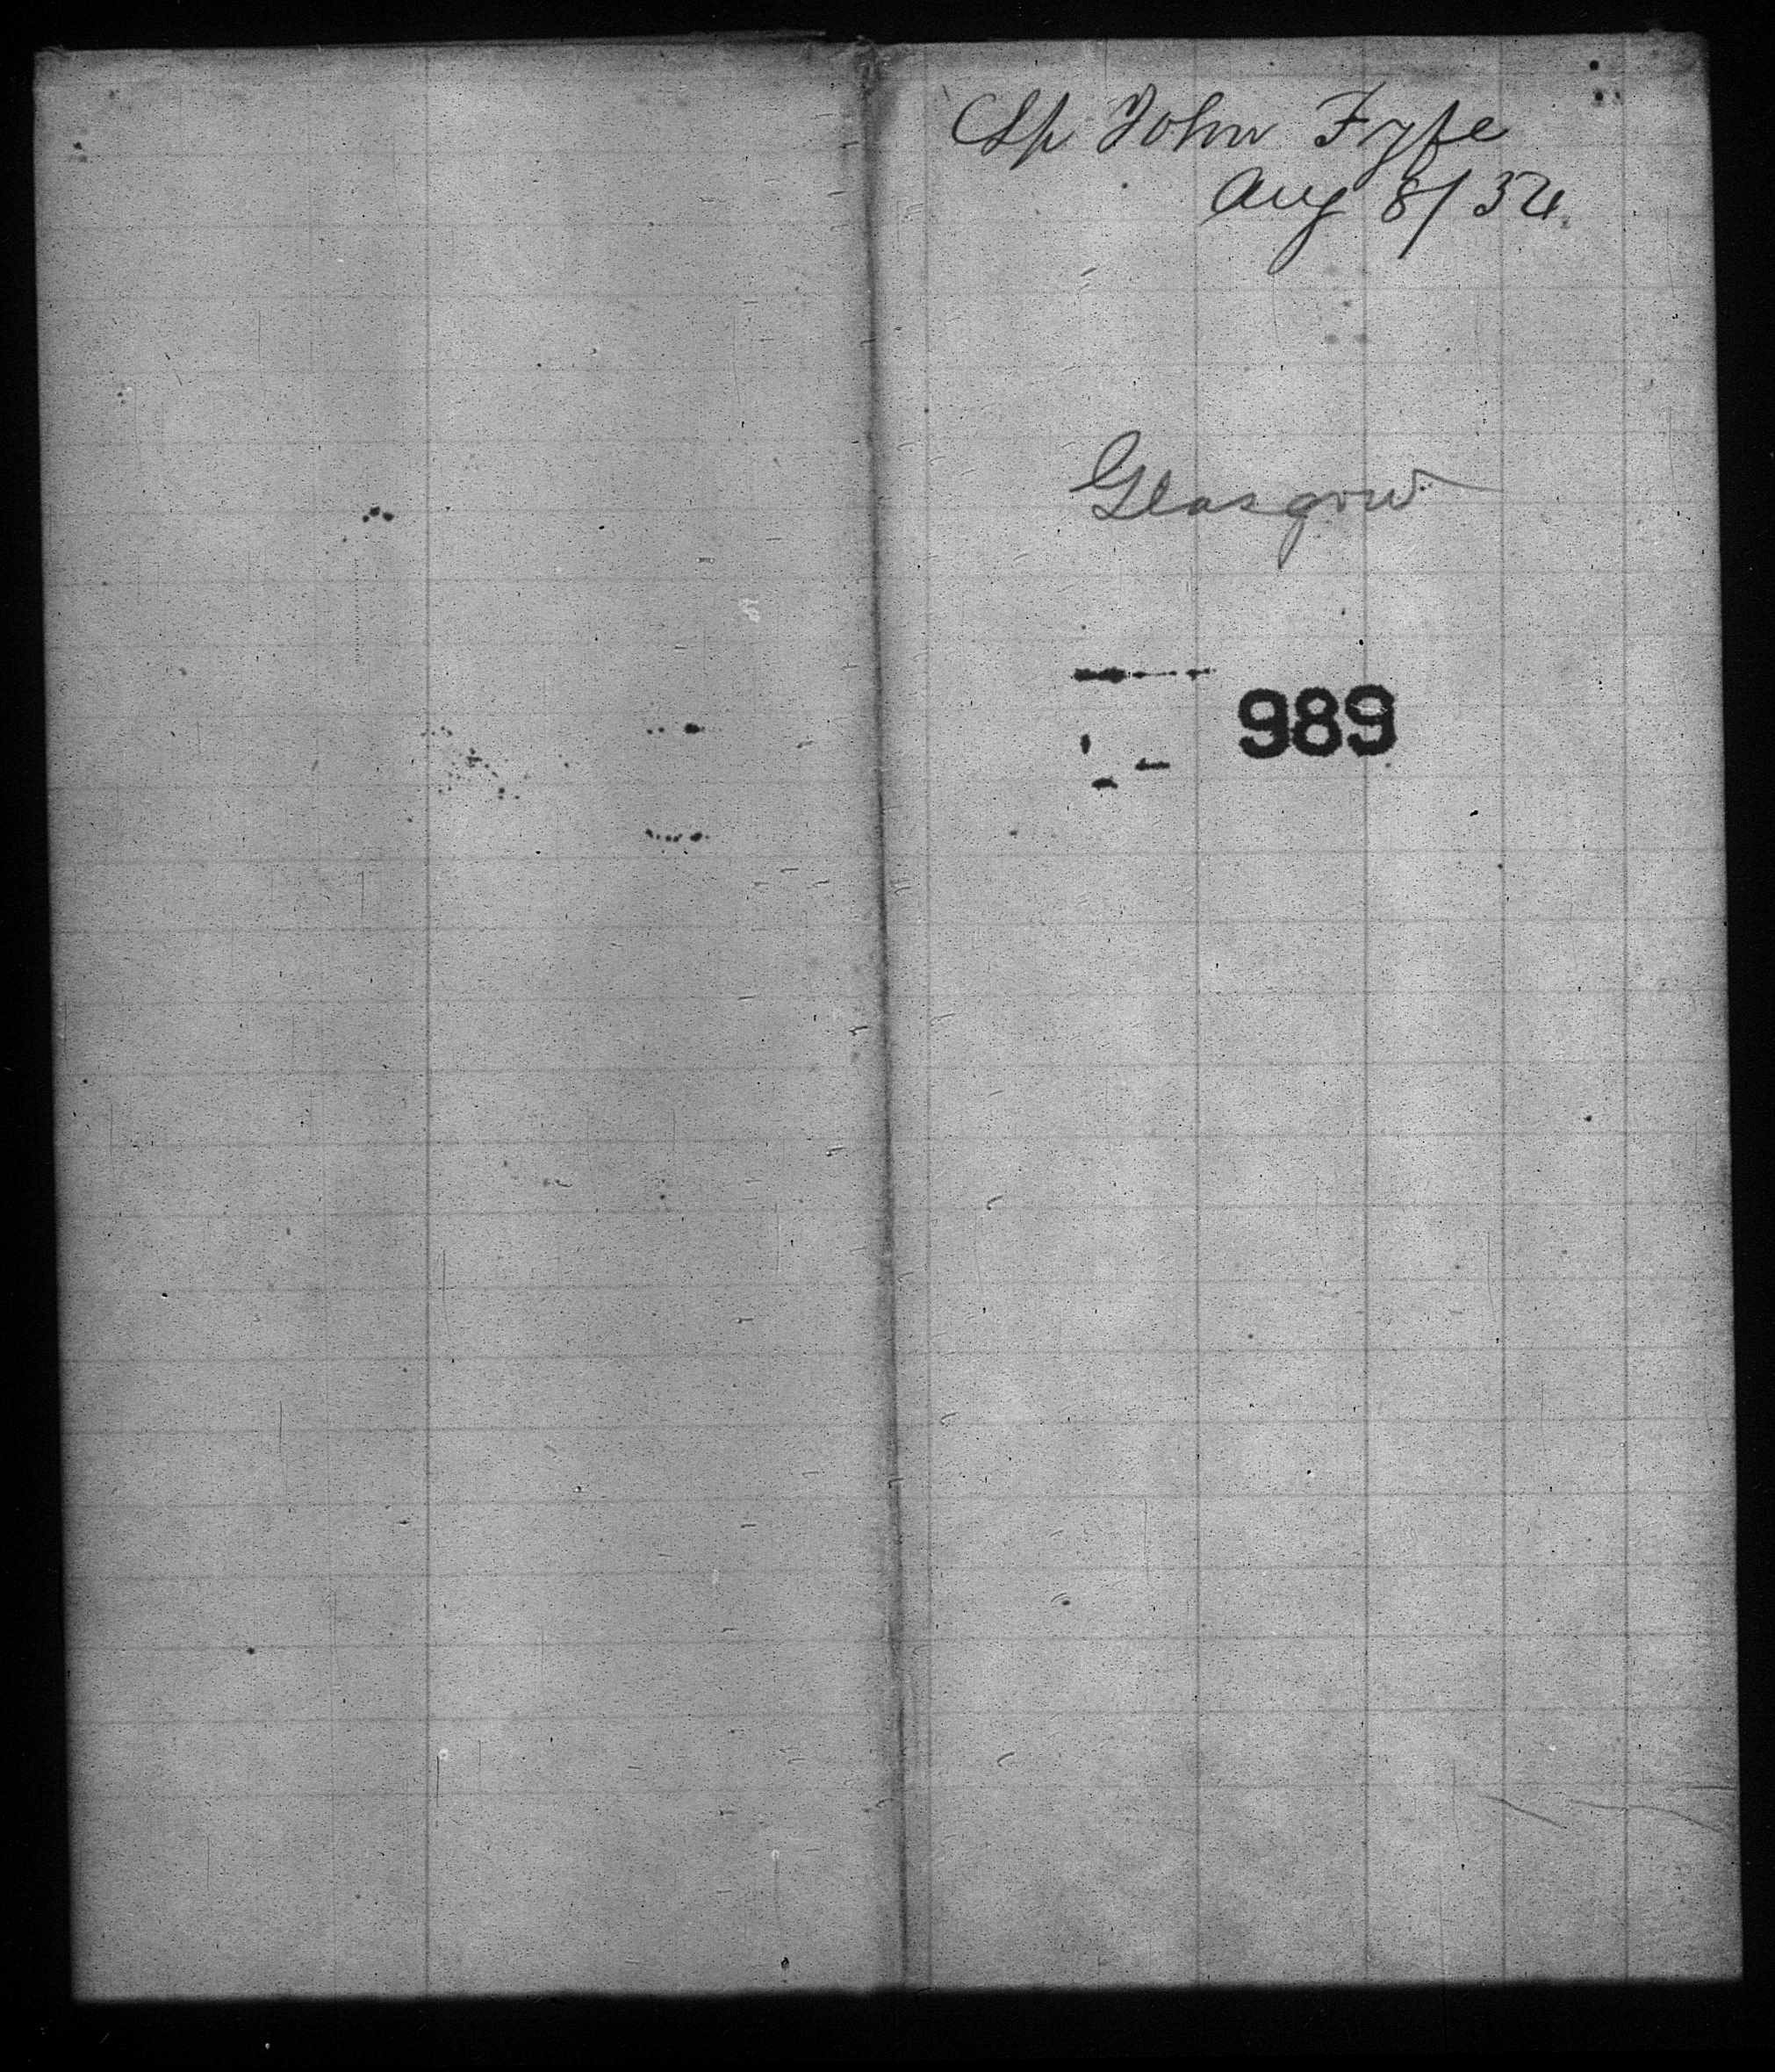 Sp John Fyfe
Aug 8/34
Glasgow
989